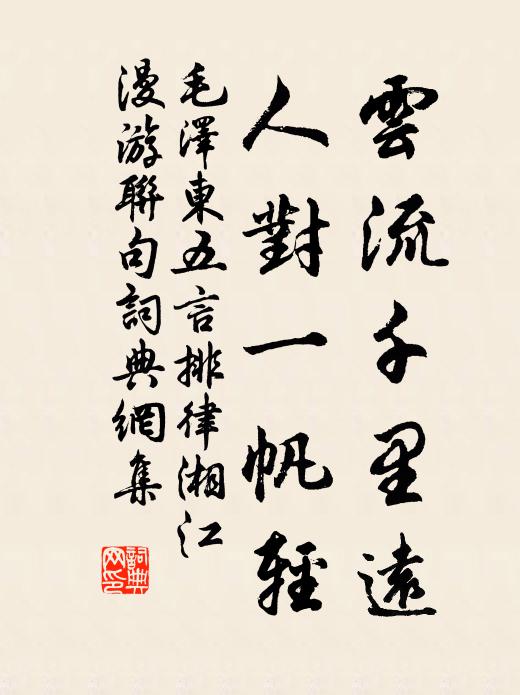 雲流千里遠
人對一帆輕
毛澤東五言排律湘江
漫游聯句詞典網集
詞典
网印